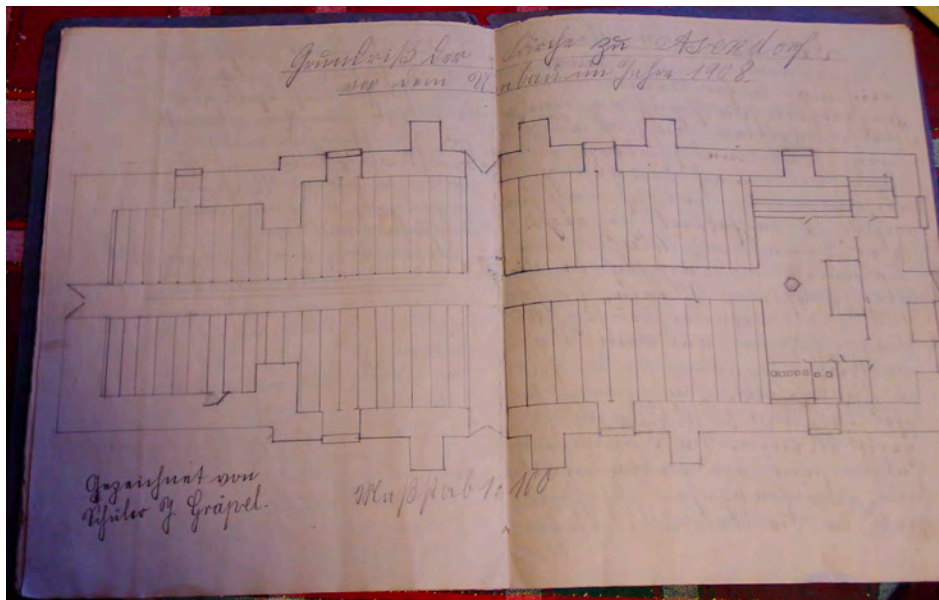 Grundriß der Kirche zu Asendorf
vor dem Neubau im Jahre 1908
Gezeichnet von
Schüler H Gräpel.
Maßstab 1:100